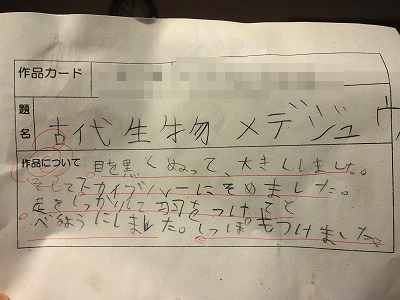 作品カード
題名 古代生物 メデジュウ
作品について 目を黒くぬって、大きくしました。
そしてスカイブルーにそめました。
足をしっかりして羽をつけてと
べるようにしました。しっぽもつけました。